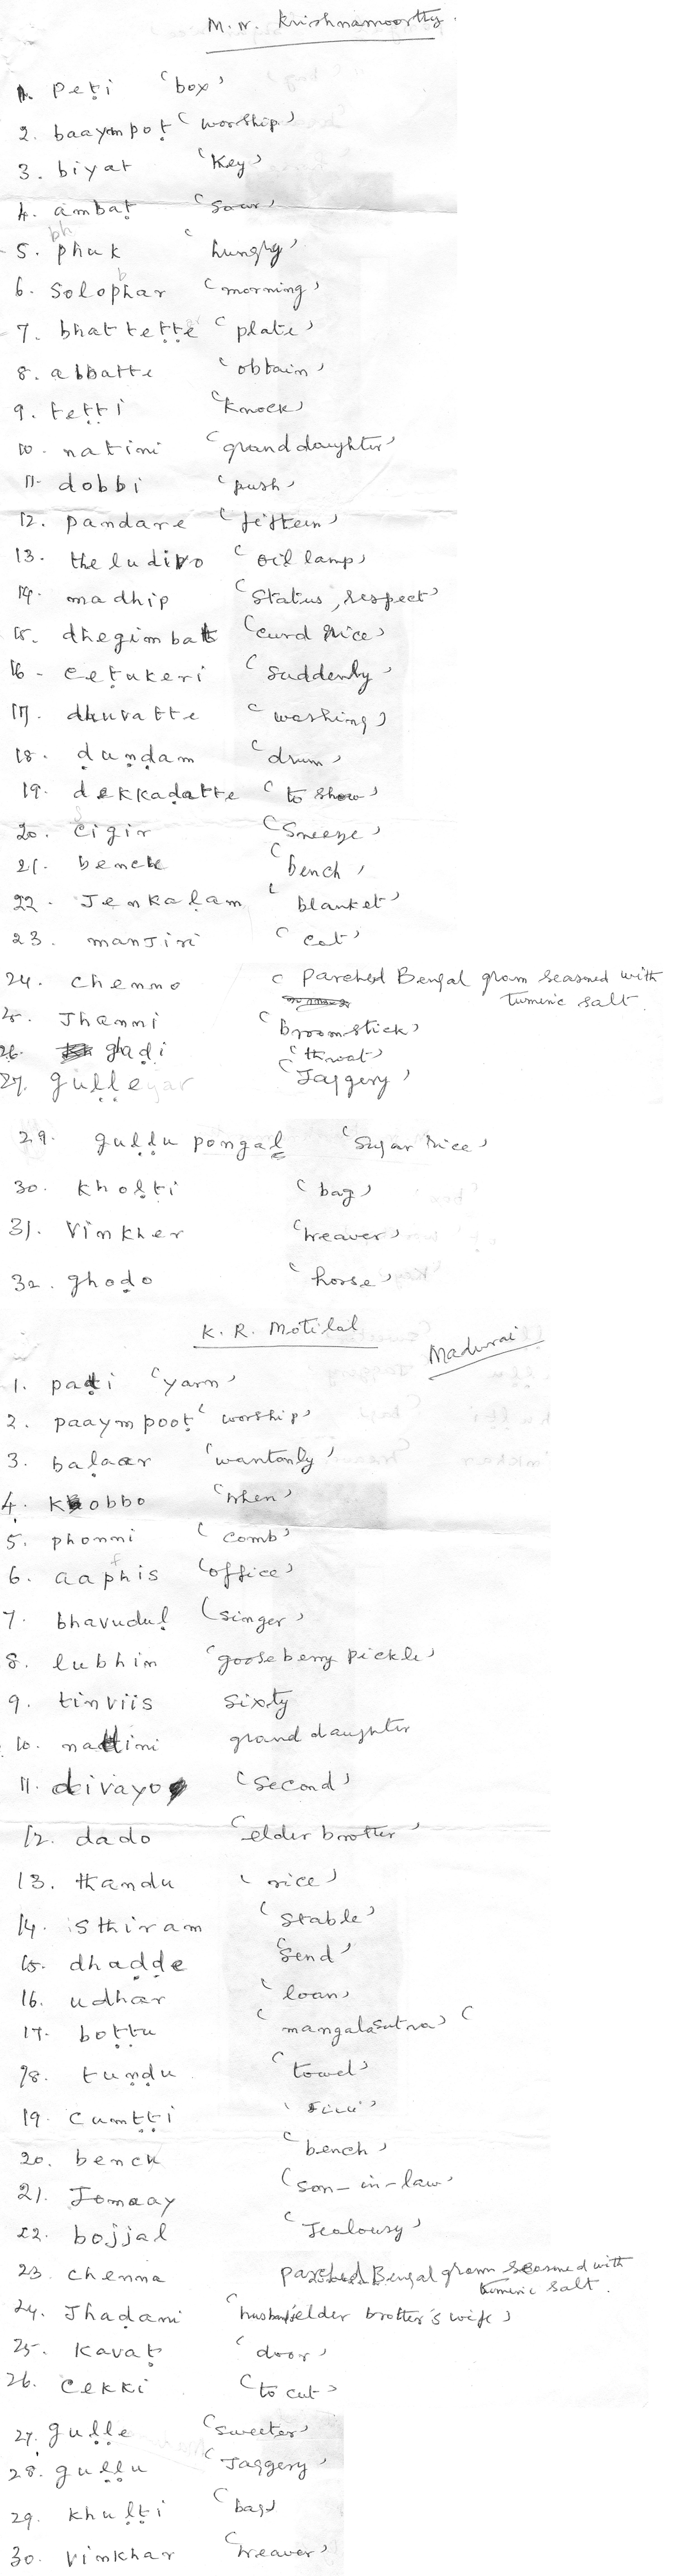 M.N. Krishnamoorthy
1. peṭi 'box'
2. baaympoṭ 'worship'
3. biyat 'Key'
4. ambaṭ 'sour'
bh
5. phuk 'hungry'
b
6. Solophar 'morning'
7. bhatteṭṭe 'plate'
8. abbatte 'obtain'
9. teṭṭi 'Knock'
10. natini 'grand daughter'
11. dobbi 'push'
12. pandare 'fifteen'
13. theludivo 'oil lamp'
14. madhip 'Status, respect'
15. dhegimbat 'curd rice'
16. ceṭukeri 'suddenly'
17. dhuvatte 'washing'
18. ḍunḍam 'drum'
19. dekkaḍatte 'to show'
20. cigir 'Sneeze'
21. bench 'bench'
22. Jenkaḷam 'blanket'
23. manJiri 'cat'
24. chenno 'parched Bengal gram seasoned with
turmeric salt.
25. Jhanni 'broomstick'
26. ghaḍi 'throat'
27. guḷḷe 'Jaggery'
29. guḷḷu pongal 'sugar rice'
30. kholṭi 'bag'
31. Vinkher 'weaver'
32. ghoḍo 'horse'
K. R. Motilal
Madurai
1. paṭi 'yarn'
2. paaympooṭ 'worship'
3. baḷaar 'wantonly'
4. kobbo 'when'
5. phonni 'comb'
f
6. aaphis 'office'
7. bhavuduḷ 'singer'
8. lubhin 'goose berry pickle'
9. tinviis sixty
10. nattini grand daughter
11. divayo 'second'
12. dado 'elder brother'
13. thandu 'rice'
14. isthiram 'Stable'
15. dhaḍḍe 'send'
16. udhar 'loan'
17. boṭṭu 'mangalasutra'
18. tuṇḍu 'towel'
19. cumṭṭi
20. bench 'bench'
21. Jomaay 'son-in-law'
22. bojjal 'Jealousy'
23. chenna parched Bengal gram seasoned with
turmeric salt.
24. Jhaḍani 'husband elder brother's wife'
25. Kavaṭ 'door'
26. cekki 'to cut'
27. guḷḷe 'sweeter'
28. guḷḷu 'Jaggery'
29. khulṭi 'bag'
30. vinkhar 'weaver'